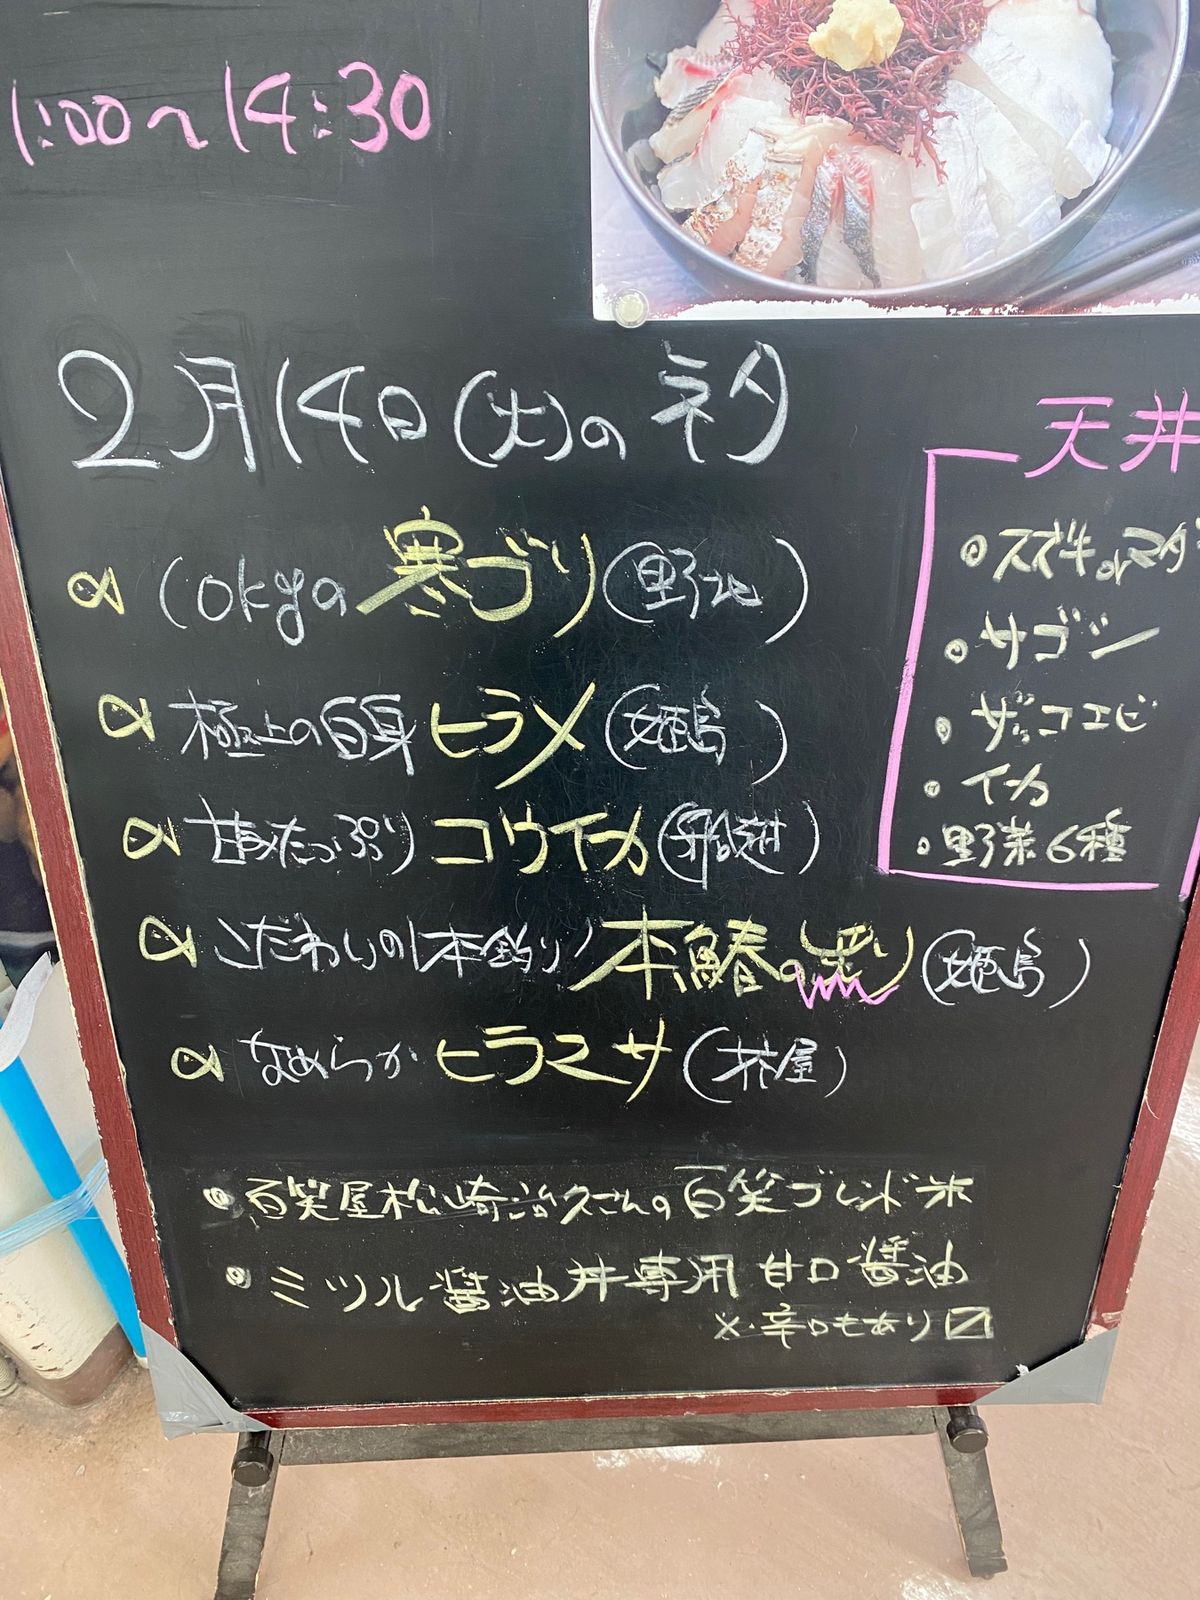 1:00〜14:30
2月14日(火)のネタ
(10kgの寒ブリ(野北)
極上の白身ヒラメ(姫島)
甘みたっぷりコウイカ(船越)
こだわりの1本釣り本鰆の炙り(姫島)
なめらかヒラマサ(芥屋)
・百笑屋松崎治久さんの百笑ブレンド米
・ミツル醤油丼専用 甘口醤油
※辛口もあり
天丼
・スズキorマダ
・サゴシ
・ザッコエビ
・イカ
・野菜6種